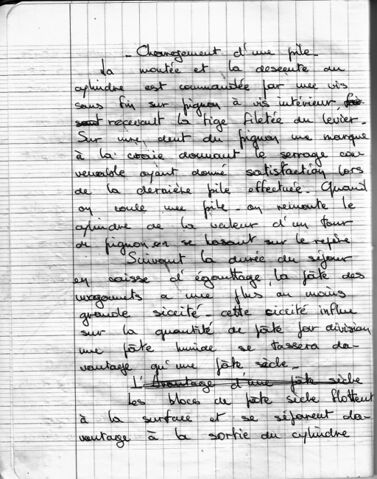 - Chargement d'une pile -
La montée et la descente du
cylindre est commandée par une vis
sans fin sur pignon à vis intérieur,
recevant la tige filetée du levier.
Sur une dent du pignon une marque
à la craie donnant le serrage con
venable ayant donné satisfaction lors
de la dernière pile effectuée. Quand
on coule une pile on remonte le
cylindre de la valeur d'un tour
de pignon en se basant sur le repère
Suivant la durée du séjour
en caisse d'égouttage la pâte des
wagonnets a une plus ou moins
grande siccité - cette siccité influe
sur la quantité de pâte par division
une pâte humide se tassera da-
vantage qu'une pâte sèche -
L'Avantage d'une pâte sèche
Les blocs de pâte sèche flottent
à la surface et se séparent da-
vantage à la sortie du cylindre